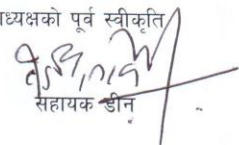 ध्यक्षको पूर्व स्वीकृति
सहायक डीन